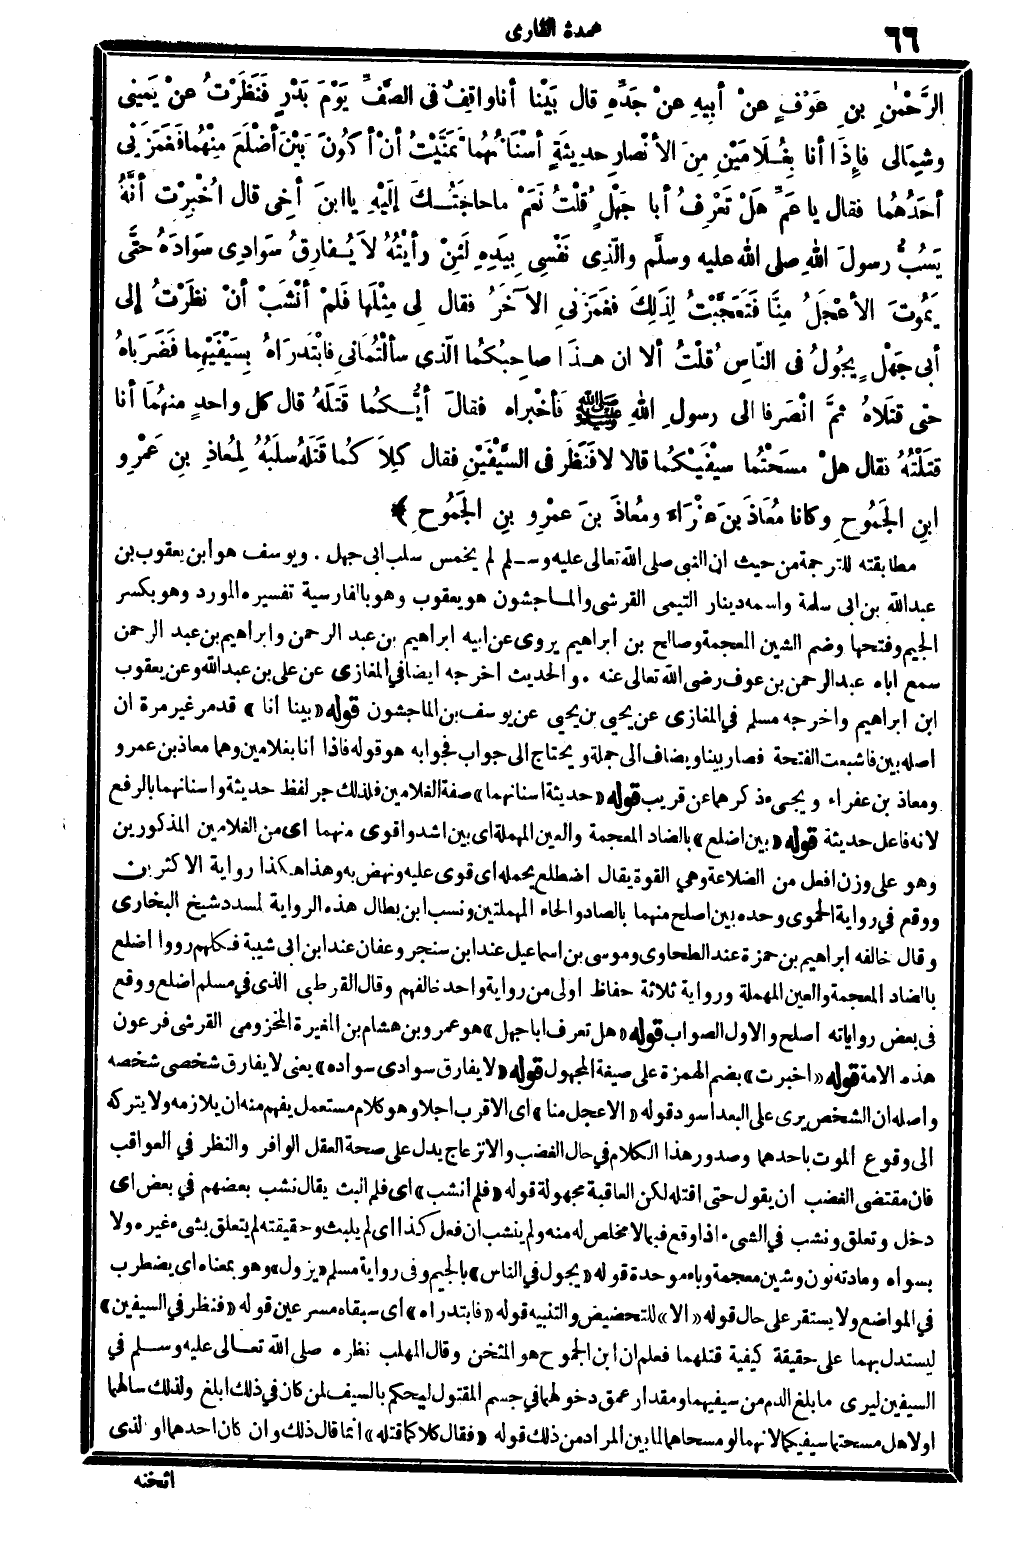 ٦٦
عمدة القارى
الرَّحْمٰنِ بنِ عَوْفٍ عنْ أبِيهِ عنْ جَدِّهِ قال بَيْنا أناواقِفٌ فى الصَّفِّ يَوْمَ بَدْرٍ فَنَظَرْتُ عنْ يَمِينِى
وشِمالى فإِذَا أنا بِغُلَامَيْنِ مِنَ الأنْصارِ حدِيثَةٍ أسْنَانُهُما تَمَنَّيْتُ أنْ أكُونَ بَيْنَ أضْلَعَ مِنْهُما فَغَمَزَنِى
أحَدُهُما فقال يا عَمِّ هَلْ تَعْرِفُ أبا جَهْلٍ قُلْتُ نَعَمْ ماحاجَتُــكَ إلَيْهِ ياابنَ أخِى قال اُخْبِرْت أنَّهُ
يَسُبُّ رسولَ اللهِ صلى الله عليه وسلَّم والّذِى نَفْسِى بِيَدِهِ لَئِنْ رأيْتُهُ لاَ يُــفارِقُ سَوَادِى سَوَادَهُ حتَّى
يَمُوتَ الأعْجَلُ مِنَّا فَتَعَجَّبْتُ لِذَلِكَ فغَمَزَنِى الآخَرُ فقال لِى مِثْلَها فَلمْ أنْشَبْ أنْ نظَرْتُ إلى
أبى جَهْلٍ يجُولُ فى النّاسِ قُلْتُ ألا ان هــذَا صاحِبُكُما الّذِى سألْتُمانِى فابْتَدرَاهُ بِسَيْفَيْهِما فَضَرَباهُ
حتى قتلَاهُ ثمَّ انْصَرفا الى رسولِ اللهِ ﷺ فأخْبراه فقالَ أيُّــكُما قَتَلَهُ قال كل واحدٍ منهُما أنا
قتَلْتُهُ فقال هلْ مسَحْتُما سيْفَيْكُما قالا لا فَنَظَر فى السَّيْفَيْنِ فقال كِلاَ كُما قَتَلَهُ سلَبُهُ لِمُعاذِ بنِ عَمْرِو
ابنِ الجَمُوحِ وكانا مُعَاذَ بنَ عفْرَاءَ ومُعاذَ بنَ عمْرِو بنِ الجَمُوحِ ﴾
مطابقته للترجمة من حيث ان النبى صلى الله تعالى عليه وسـلم لم يخمس سلب ابى جهل . ويوسف هو ابن يعقوب بن
عبدالله بن ابى سلمة واسمه دينار التيمى القرشى والمـاجشون هو يعقوب وهو بالفارسية تفسيره المورد وهو بكسر
الجيم وفتحها وضم الشين المعجمة وصالح بن ابراهيم يروى عن ابيه ابراهيم بن عبد الرحمن وابراهيم بن عبد الرحمن
سمع اباه عبدالرحمن بن عوف رضى الله تعالى عنه . والحديث اخرجه ايضا فى المغازى عن على بن عبدالله وعن يعقوب
ابن ابراهيم واخرجه مسلم فى المغازى عن يحيى بن يحيى عن يوسف بن الماجشون قوله «بينا أنا» قد مر غير مرة ان
اصله بين فاشبعت الفتحة فصار بينا ويضاف الى جملة ويحتاج الى جواب فجوابه هو قوله فاذا انا بغلامين وهما معاذ بن عمرو
ومعاذ بن عفراء ويجىء ذكرهما عن قريب قوله «حديثة اسنانهما» صفة الغلامين فلذلك جر لفظ حديثة واسنانهما بالرفع
لانه فاعل حديثة قوله «بين اضلع» بالضاد المعجمة والعين المهملة اى بين اشد واقوى منهما اى من الغلامين المذكورين
وهو على وزن افعل من الضلاعة وهى القوة يقال اضطلع بحمله اى قوى عليه ونهض به وهذا هـكذا رواية الاكثرين
ووقع فى رواية الحموى وحده بين اصلح منهما بالصاد والحاء المهملتين ونسب ابن بطال هذه الرواية لمسدد شيخ البخارى
وقال خالفه ابراهيم بن حمزة عند الطحاوى وموسى بن اسماعيل عند ابن سنجر وعفان عند ابن ابى شيبة فـكلهم رووا اضلع
بالضاد المعجمة والعين المهملة ورواية ثلاثة حفاظ اولى من رواية واحد خالفهم وقال القرطبى الذى فى مسلم اضلع ووقع
فى بعض رواياته اصلح والاول الصواب قوله «هل تعرف اباجهل» هو عمرو بن هشام بن المغيرة المخزومى القرشى فرعون
هذه الامة قوله «اخبرت» بضم الهمزة على صيغة المجهول قوله «لا يفارق سوادى سواده» يعنى لا يفارق شخصى شخصه
واصله ان الشخص يرى على البعد اسود قوله «الاعجل منا» اى الاقرب اجلا وهو كلام مستعمل يفهم منه ان يلازمه ولا يتركه
الى وقوع الموت باحدهما وصدور هذا الكلام فى حال الغضب والانزعاج يدل على صحة العقل الوافر والنظر فى العواقب
فان مقتضى الغضب ان يقول حتى اقتله لكن العاقبة مجهولة قوله «فلم أنشب» اى فلم البث يقال نشب بعضهم فى بعض اى
دخل وتعلق ونشب فى الشىء اذا وقع فيما لا مخلص له منه ولم ينشب ان فعل كذا اى لم يلبث وحقيقته لم يتعلق بشىء غيره ولا
بسواه ومادته نون وشين معجمة وباء موحدة قوله «يجول فى الناس» بالجيم وفى رواية مسلم «يزول» وهو بمعناه اى يضطرب
فى المواضع ولا يستقر على حال قوله «الا» للتحضيض والتنبيه قوله «فابتدراه» اى سبقاه مسرعين قوله «فنظر فى السيفين»
ليستدل بهما على حقيقة كيفية قتلهما فعلم ان ابن الجموح هو المثخن وقال المهلب نظره صلى الله تعـالى عليه وسـلم فى
السيفين ليرى ما بلغ الدم من سيفيهما ومقدار عمق دخولهما فى جسم المقتول ليحكم بالسيف لمن كان فى ذلك ابلغ ولذلك سالهما
اولا هل مسحتما سيفيكما لانهما لو مسحاهما لما بين المراد من ذلك قوله «فقال كلا كما قتله» انما قال ذلك وان كان احدهما هو الذى
اثخنه